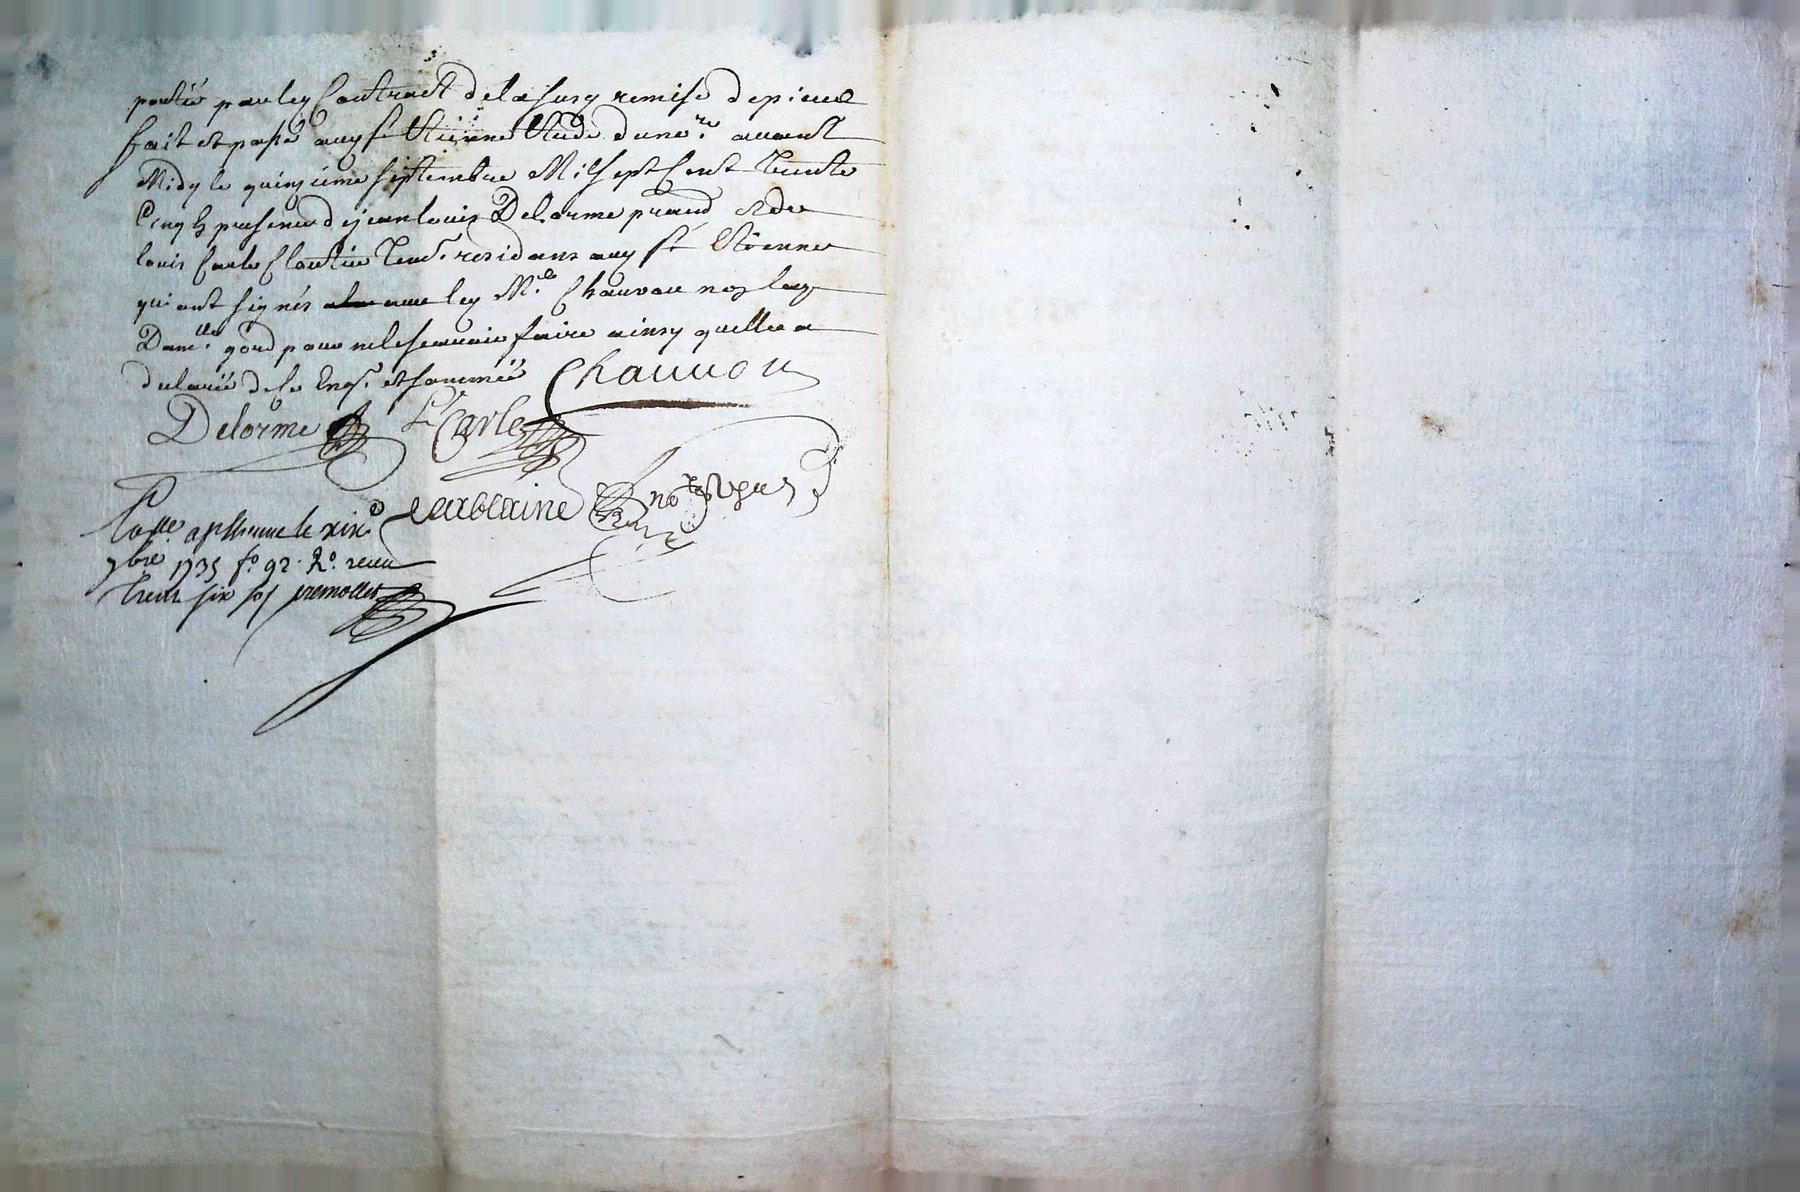 portée par ley Contract delasusd remise depieces
fait et passé aud st Etienne Etude dune.re avant
Midy le quinzieme septembre Mil sept Cent Trente
Cinq presence de jean louis Delorme prand et de
louis Carle Cloutier Temt. residans aud st Etienne
qui ont signés avec led Mr. Chauvon non lad
Damlle gord pour nelescauoir faire ainsy quelle a
declaré dece Enqse. et sommée Chauvon
Delorme Ls Carle
Carblaine nore Royal
Colle a st Etienne le xix
7bre 1735 fo. 92. Ro. receu
Trente six sols premolles